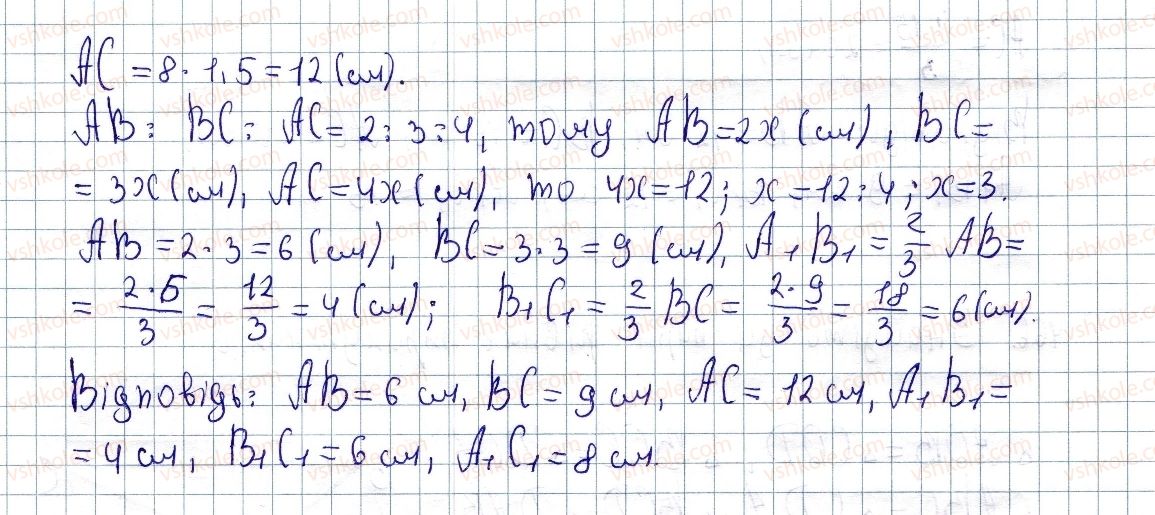 AC = 8 · 1,5 = 12 (см).
AB : BC : AC = 2 : 3 : 4, тому AB = 2x (см), BC =
= 3x (см), AC = 4x (см), то 4x = 12; x = 12 : 4; x = 3.
AB = 2 · 3 = 6 (см), BC = 3 · 3 = 9 (см), A₁B₁ = 2/3 AB =
= 2·6/3 = 12/3 = 4 (см); B₁C₁ = 2/3 BC = 2·9/3 = 18/3 = 6 (см).
Відповідь: AB = 6 см, BC = 9 см, AC = 12 см, A₁B₁ =
= 4 см, B₁C₁ = 6 см, A₁C₁ = 8 см.